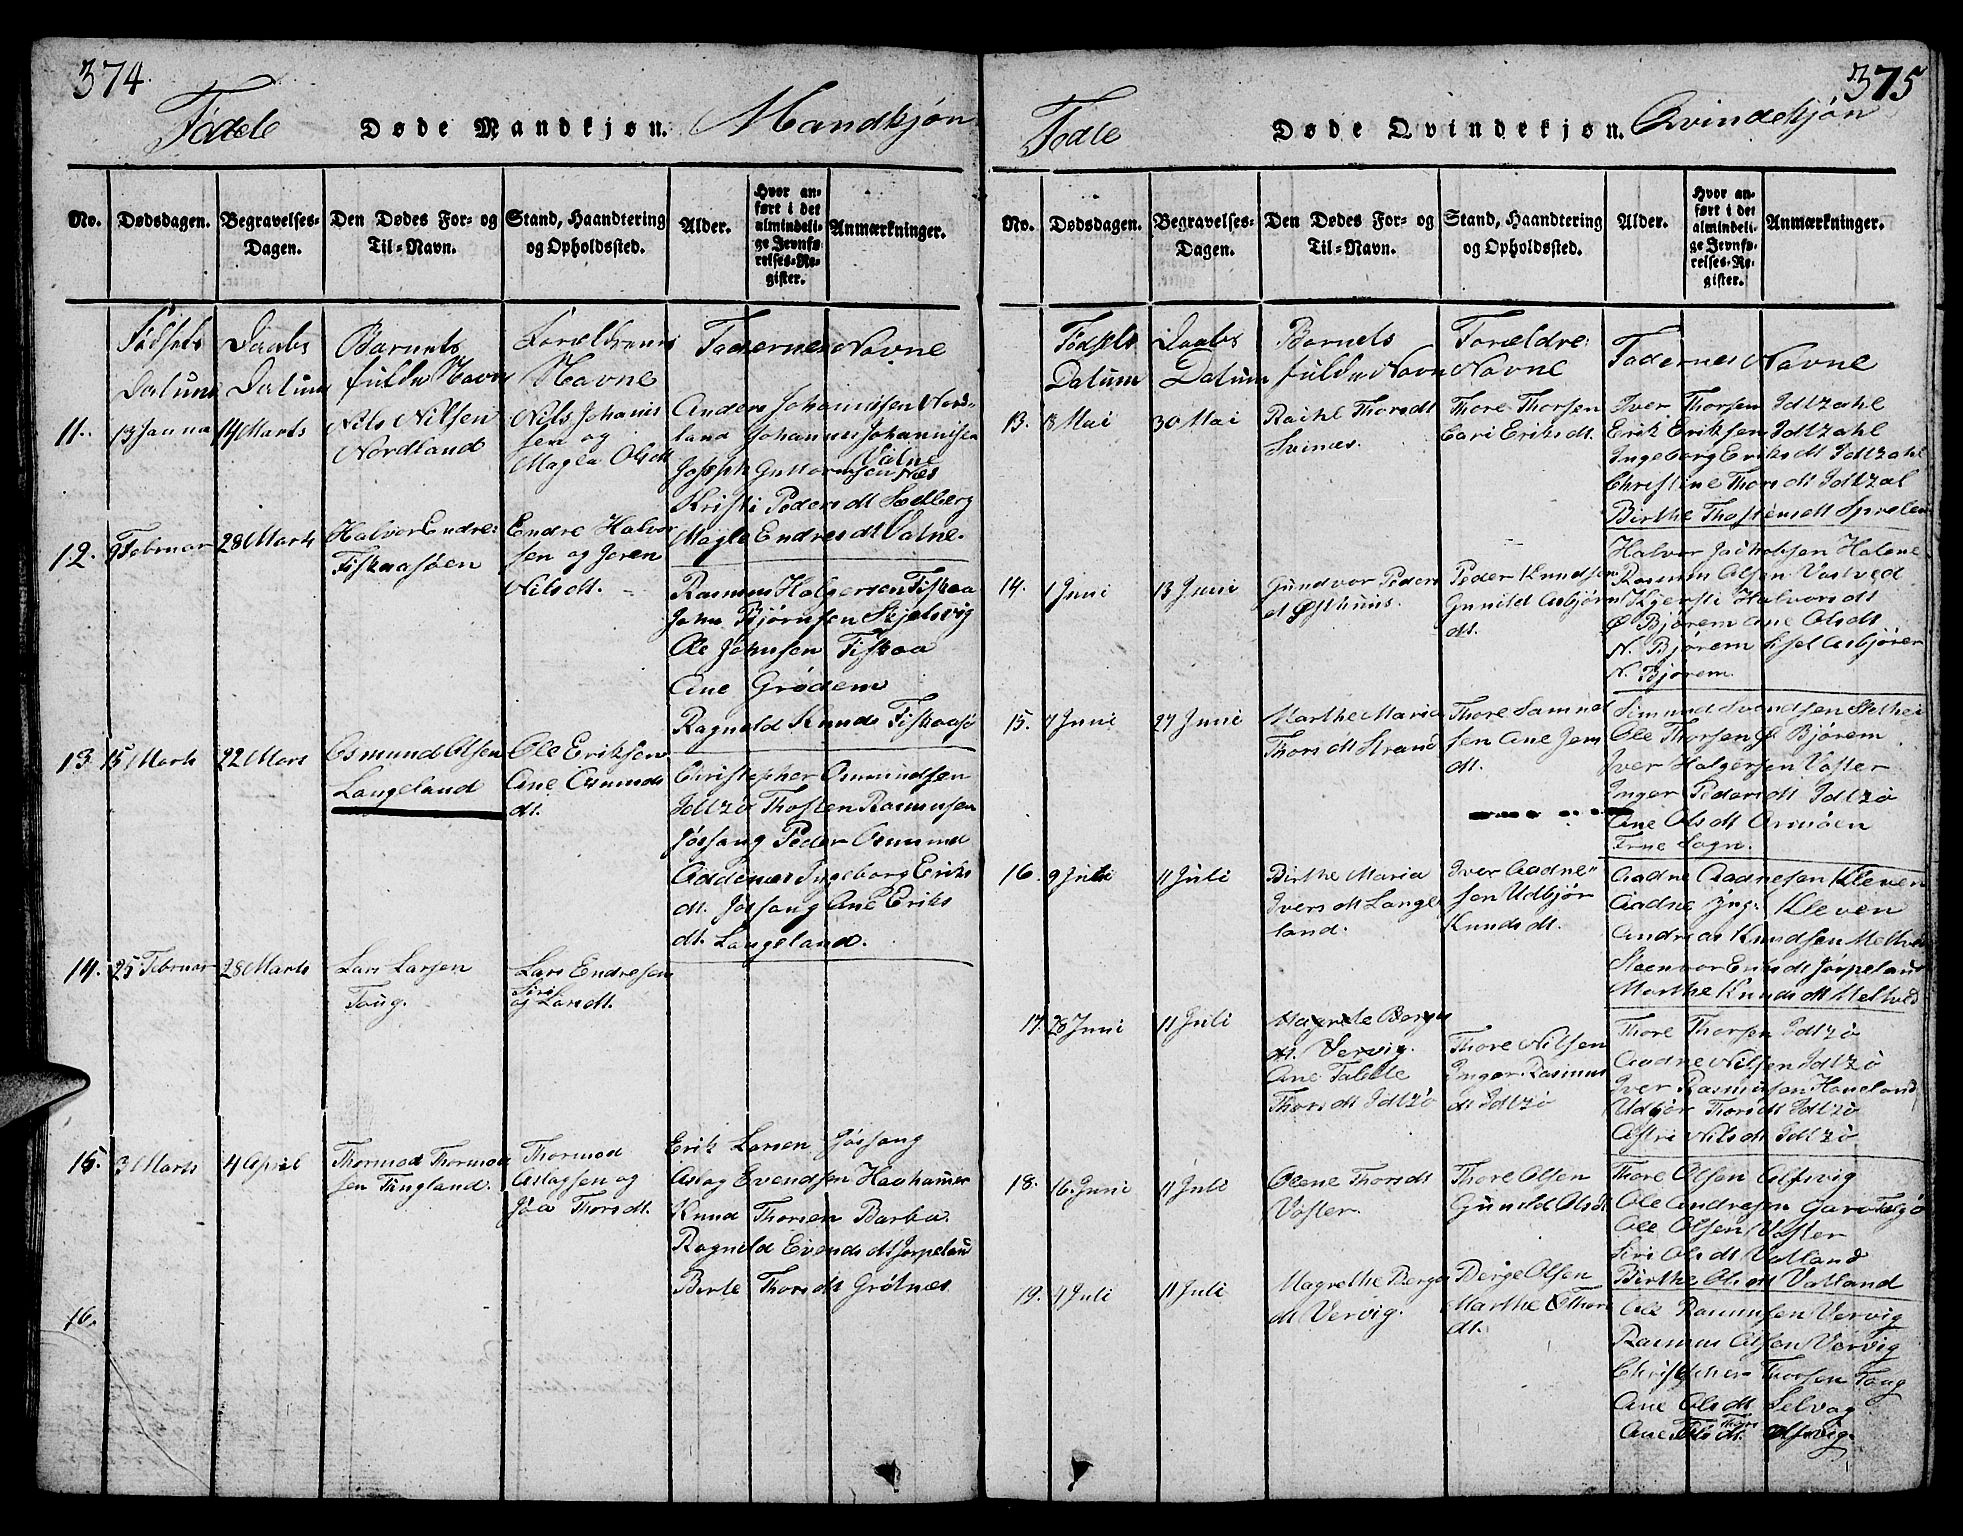 374.
Fødde Døde Mandkjøn. Mandkjøn
No. Dødsdagen. Begravelses-Dagen. Den Dødes For- og Til-Navn. Stand, Haandtering og Opholdssted. Alder. Hvor anført i det almindelige Jevnførelses-Register. Anmærkninger.
Fødsels Datum Daabs Datum Barnets fulde Navn Forældrenes Navne Faddernes Navne
11. 13 Janua 14 Marts
Nils Nilsen
Nordland
Nils Johannis
sen og
Magla Olsdt
Anders Johannissen Nord-
land Johannis Johannisen
Valne
Joseph Guttormsen Næs
Kristi Pedersdt Soelberg
Magle Endresdt Valne.
12. 9 Februar 28 Marts
Halvor Endre:
Fiskaasøen
Endre Halvor
sen og Joren
Nilsdt.
Rasmus Holgersen Fiskaa
John Bjørnsen Skjelsvig
Ole Johnsen Fiskaa
Ane Grødem
Ragnold Knuds Fiskaasø
13 15 Marts 22 Mars
Osmund Olsen
Langeland
Ole Eriksen
Ane Osmunds
dt.
Christopher Osmundsen
Idtzø Thosten Rasmusen
Jøssang Peder Osmund
Addenæs Ingeborg Eriks
dt. Jøssang Ane Eriks
dt. Langeland.
14. 25 Februar 28 Marts
Lars Larsen
Toug.
Lars Endresen
Siri
og Larsdt.
15. 3 Marts 4 April
Thormod Thormod
sen Tingland.
Thormod
Aslagsen og
Jøa Thorsdt.
Erik Larsen Jøssang
Aslag Evendsen Havhammer
Knud Thorsen Barka.
Ragnild Evendsdt Jørpeland
Berte Thorsdt Grøtnæs
16.
375
Fødte Døde Qvindekjøn. Qvindekjøn
No. Dødsdagen. Begravelses-Dagen. Den Dødes For- og Til-Navn. Stand, Haandtering og Opholdssted. Alder. Hvor anført i det almindelige Jevnførelses-Register. Anmærkninger.
Fødsels Datum Daabs Datum Barnets fulde Navn Forældre: Navne Faddernes Navne
13. 8 Mai 30 Mai
Rachl Thorsdt
Svines.
Thore Thorsen
Cari Eriksdt.
Iver Thorsen Idtzahl
Erik Eriksen Idtzahl
Ingeborg Eriksdt Idtzahl
Christine Thorsdt Idtzal
Birthe Thostensdt
14. 1 Juni 13 Juni
Gundvor Peders
dt Østhuus.
Peder Knudsen
Gunild Asbjørns
dt.
Halvor Jachobsen Halne
Rasmus Olsen Vostved
Kjersti Halvorsdt
Ø Bjørem Ane Olsdt
N. Bjørem Sisel Asbjørns
N. Bjørem.
15. 7 Juni 27 Juni
Marthe Maria
Thorsdt Strand
Thore Samuel
sen Ane Jens
dt.
Simund Svendsen
Ole Thorsen Ø Bjørem
Iver Holgersen Voster
Inger Pedersdt Idtzø
Ane Olsdt Omøen
Finø Sogn.
16. 9 Juli 11 Juli
Birthe Maria
Iversdt Lange
land.
Iver Aadne"
sen Udbjør
Knudsdt.
Aadne Aadnesen Kleven
Aadne Yng. Kleven
Andreas Knudsen
Steenvor Eriksdt Jørpeland
Marthe Knudsdt
17. 28 Juni 11 Juli
Magrete Børges
dt. Vervig.
Ane Talette
Thorsdt Idtzø
Thore Nilsen
Inger Rasmus
dt Idtzø
Thore Thorsen Idtzø
Aadne Nilsen Idtzø
Iver Rasmusen Haneland
Udbør Thorsdt Idtzø
Astri Nilsdt Idtzø
18. 16. Juni 11 Juli
Olene Thorsdt
Voster.
Thore Olsen
Gunild Olsdt
Thore Olsen Alsvig
Ole Andresen
Ole Olsen Voster
Siri Olsdt Vatland
Birthe Olsdt Vatland
19. 4 Juli 11 Juli
Magrethe Børges
dt Vervig.
Børge Olsen
Marthe Thor
dt.
Ole Rasmusen Vervig
Rasmus Olsen Vervig
Christopher Thorsen Toug
Ane Olsdt Selvog
Ane Thorsdt. Alsvig.